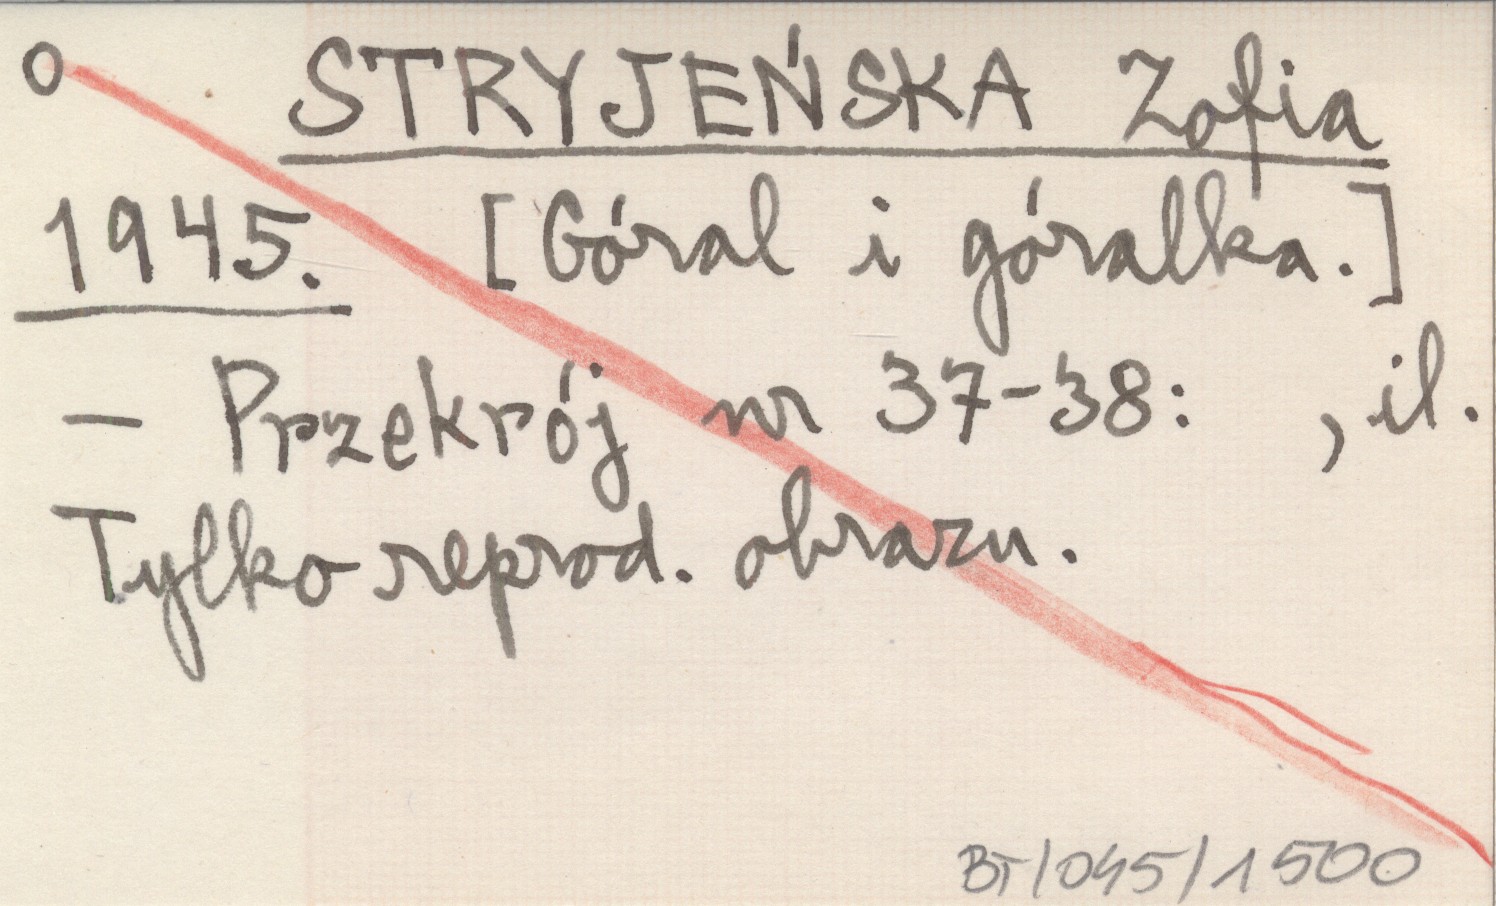 O STRYJEŃSKA Zofia
1945. [Góral i góralka.]
- Przekrój nr 37-38: , il.
Tylko reprod. obrazu.
BT/045/1500